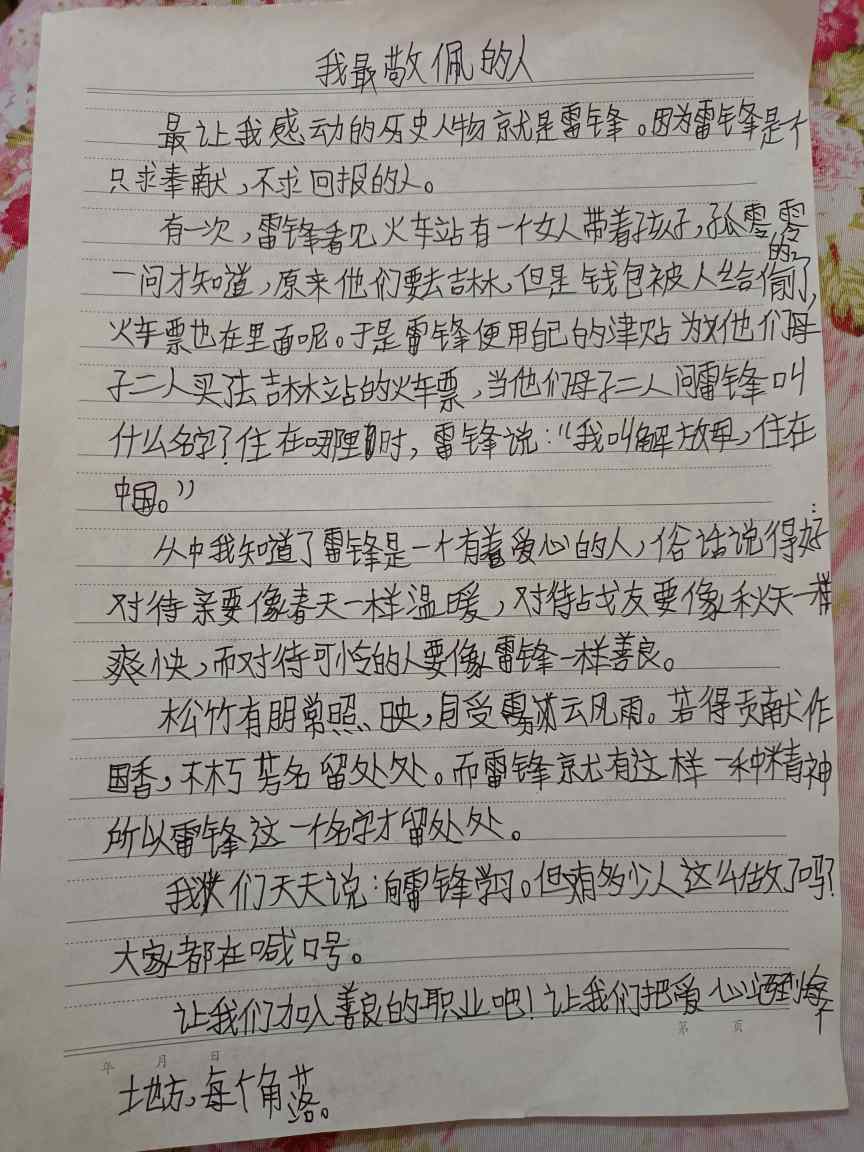 我最敬佩的人
最让我感动的历史人物就是雷锋。因为雷锋是个
只求奉献，不求回报的人。
有一次，雷锋看见火车站有一个女人带着孩子，孤零零
的
一问才知道，原来他们要去吉林，但是钱包被人给偷了，
火车票也在里面呢。于是雷锋便用自己的津贴为他们母
子二人买了去吉林站的火车票，当他们母子二人问雷锋叫
什么名字？住在哪里时，雷锋说：“我叫解放军，住在
中国。”
从中我知道了雷锋是一个有着爱心的人，俗话说得好：
对待亲要像春天一样温暖，对待战友要像秋天一样
爽快，而对待可怜的人要像雷锋一样善良。
松竹有朋常照映，自受雾冰云风雨。若得贡献作
国香，不朽芳名留处处。而雷锋就有这样一种精神
所以雷锋这一个名字才留处处。
我们天天说：向雷锋学习。但有多少人这么做了吗？
大家都在喊口号。
让我们加入善良的职业吧！让我们把爱心洒到每个
第 页
年 月 日
地方，每个角落。